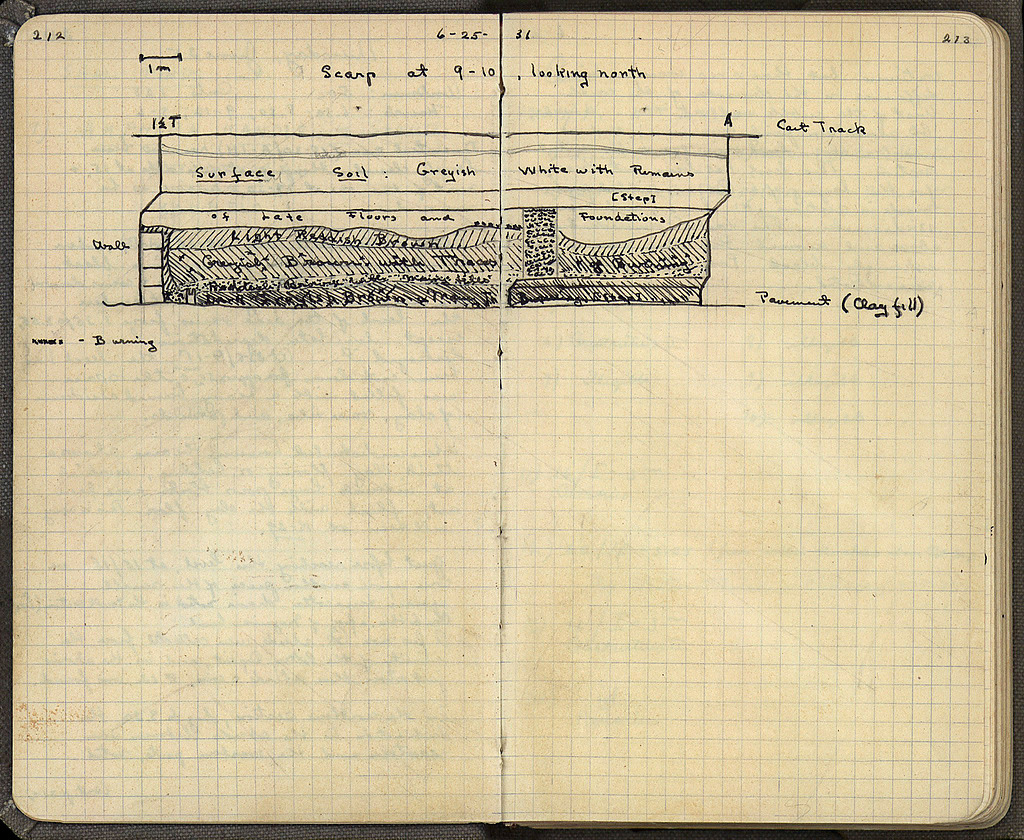 212 6-25-31 213
1m
Scarp at 9-10, looking north
1½T A
Cart Track
Surface Soil: Greyish White with Remains
[Step]
of Late Floors and Foundations
Wall
Light Reddish Brown
Greyish Brown with Traces of Burning
Pavement (Clay fill)
- Burning